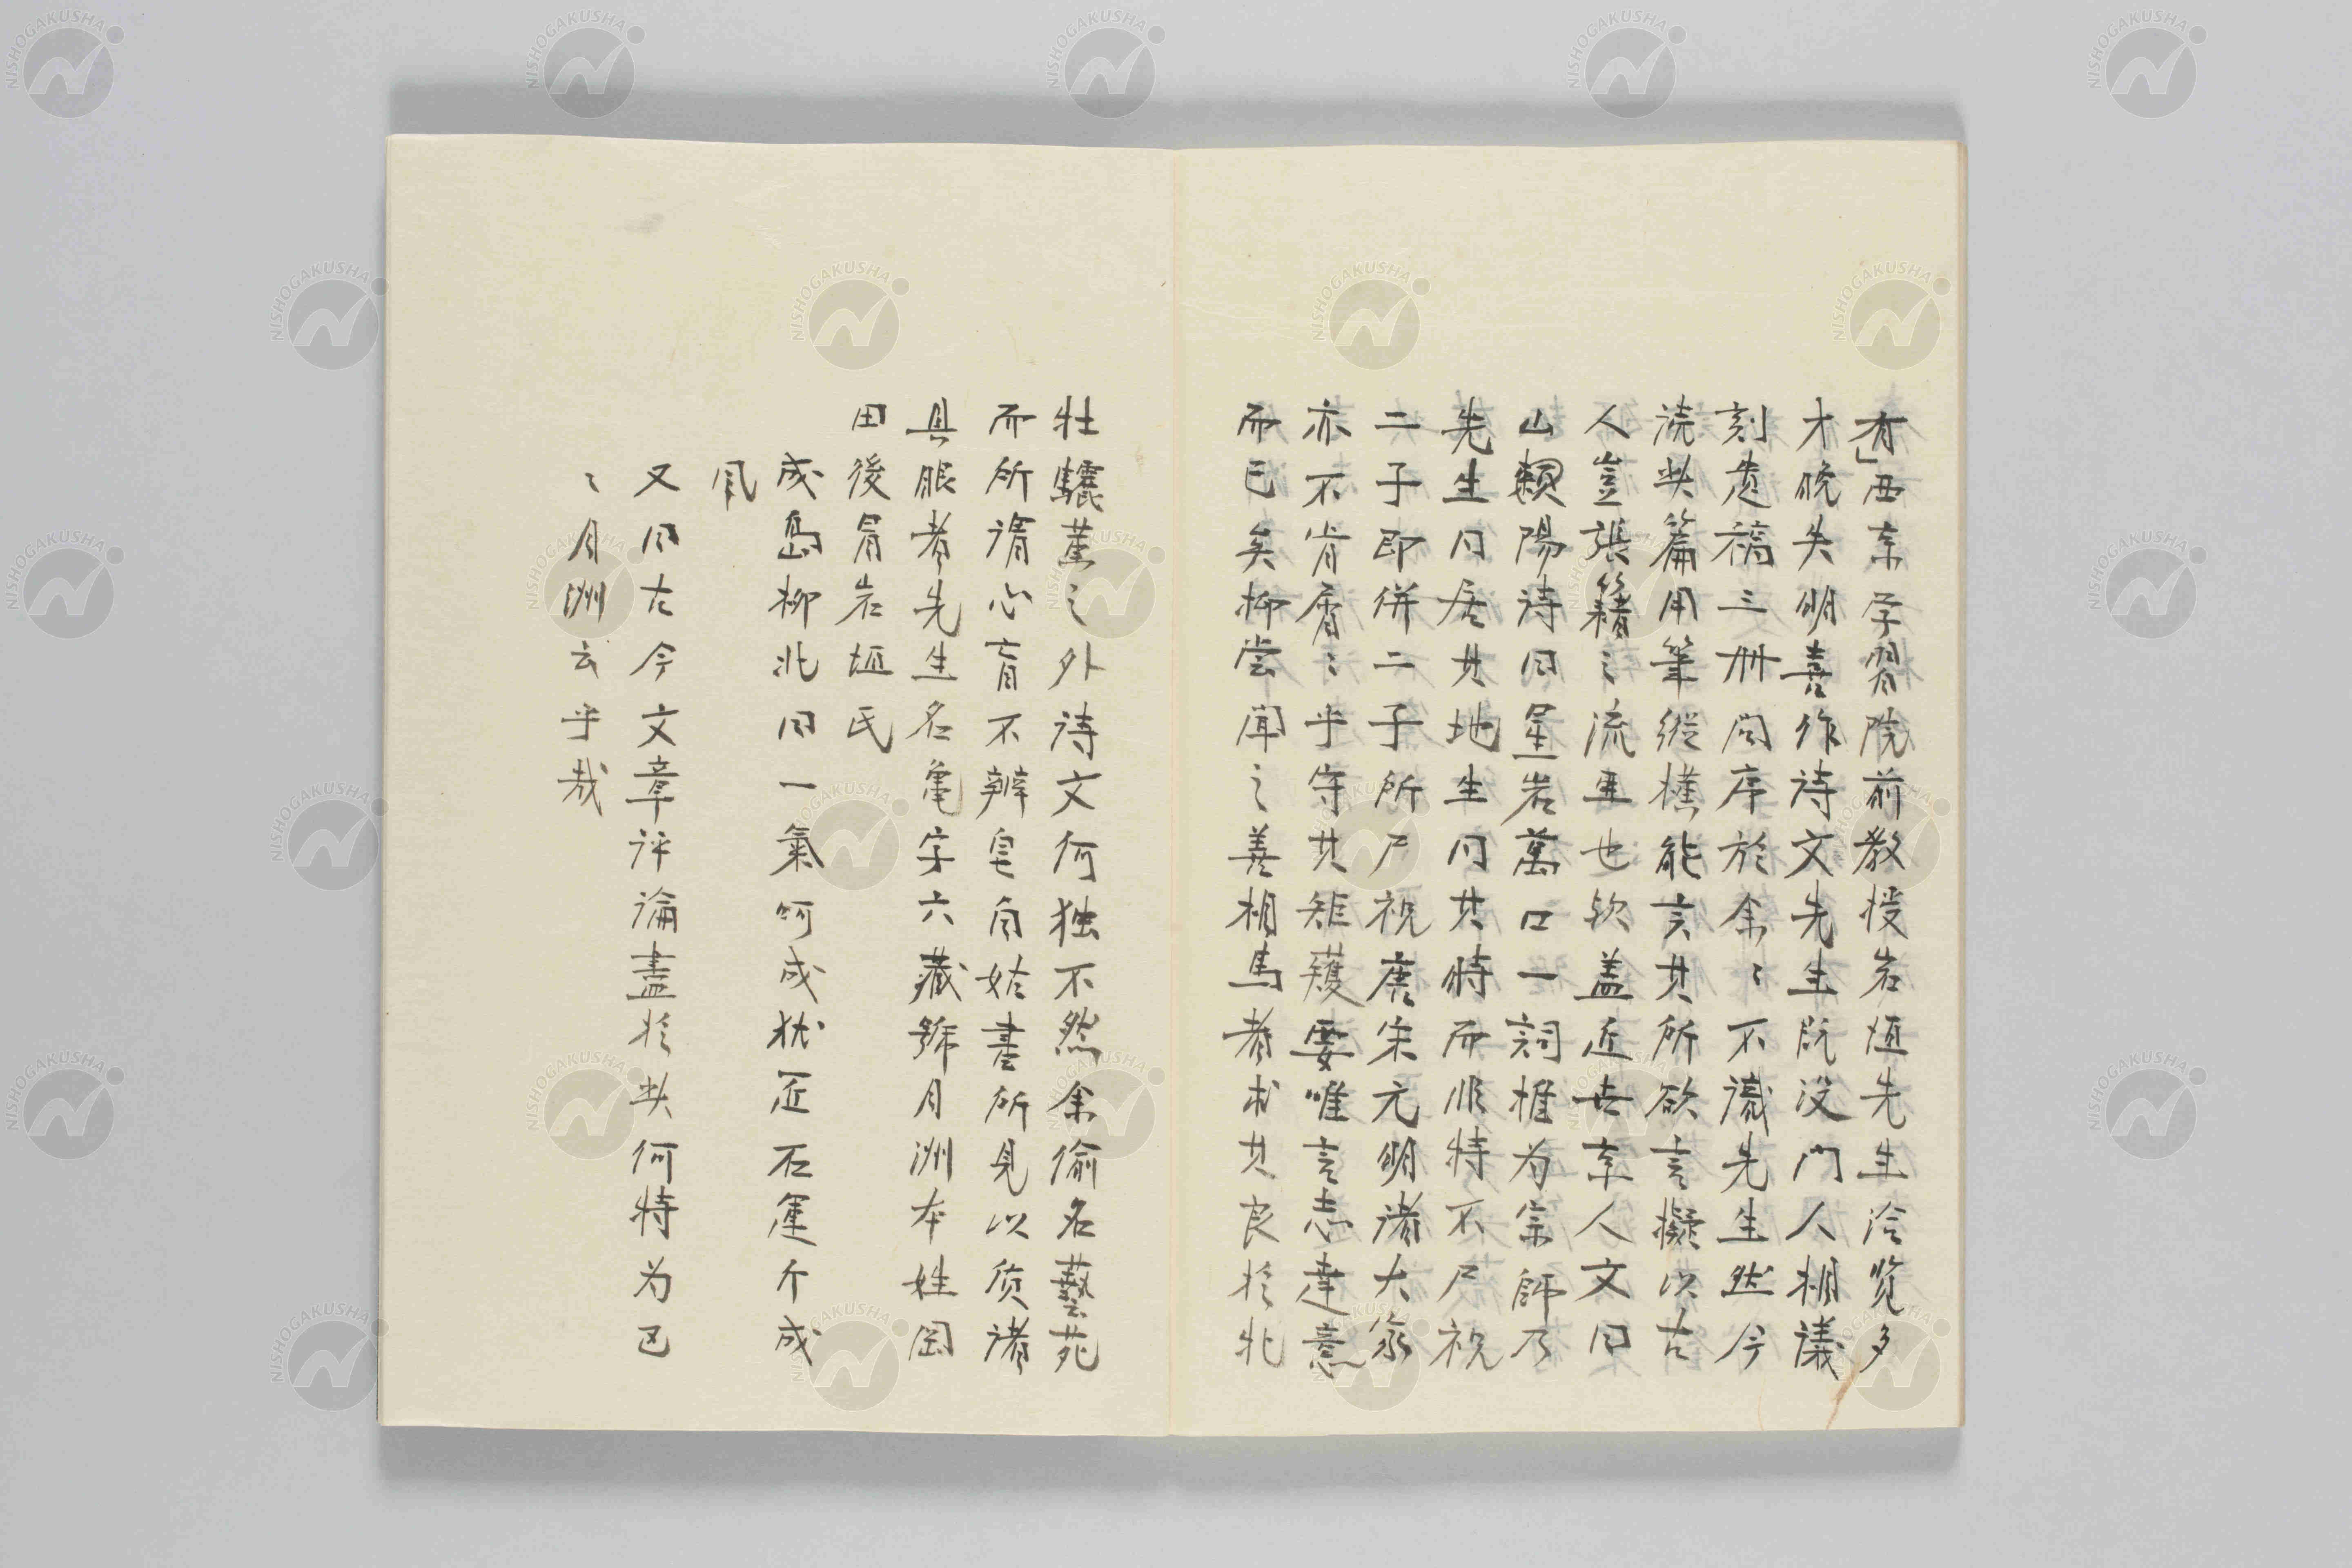 有」西京学習院前教授岩垣先生洽览多
才晩失明喜作诗文先生既没门人相議
刻遺稿三册問序於余〻不識先生然今
読其篇用筆縦横能言其所欲言擬以古
人豈張籍之流亜也欤盖近世京人文曰
山頼陽诗曰星岩萬口一詞推为宗師乃
先生同居其地生同其時而順特不尸祝
二子即併二子所尸祝唐宋元明諸大家
亦不肯屑〻乎守其矩矱要唯言志達意
而已矣抑尝闻之善相馬者求其良於牝
牡驪黄之外诗文何独不然余偷名藝苑
而所谓心盲不辨皂白姑書所見以质诸
具眼者先生名亀字六藏號月洲本姓岡
田後冒岩垣氏
成島柳北曰一氣呵成状匠石運斤成
风
又曰古今文章评论盡於此何特为已
〻月洲云乎哉
NISHOGAKUSHA